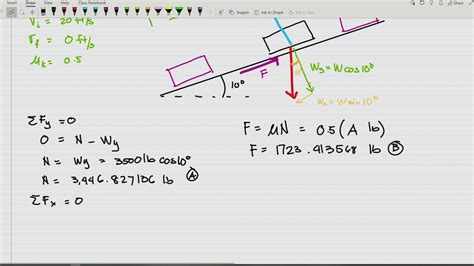 Insert Draw View Help Class Notebook
Shapes
Vi = 20 ft/s
Vf = 0 ft/s
μk = 0.5
F
10°
10°
Wy = W cos 10°
Wx = W sin 10°
ΣFy = 0
0 = N - Wy
N = Wy = 3500 lb cos 10°
N = 3,446.827136 lb (A)
ΣFx = 0
F = μN = 0.5 (A lb)
F = 1723.413568 lb (B)